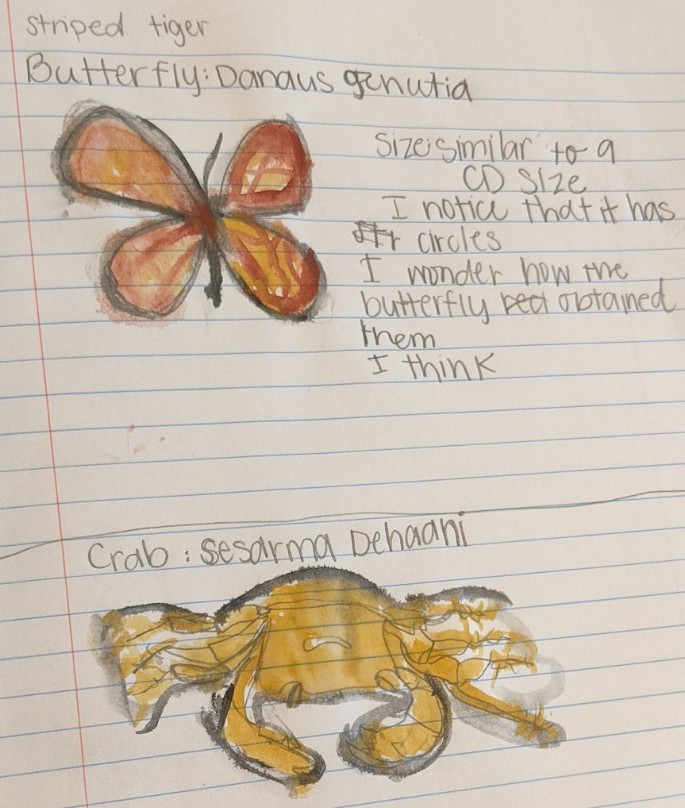 striped tiger
Butterfly: Danaus genutia
Size: similar to a
CD size
I notice that it has
circles
I wonder how the
butterfly obtained
them
I think
Crab: Sesarma Dehaani